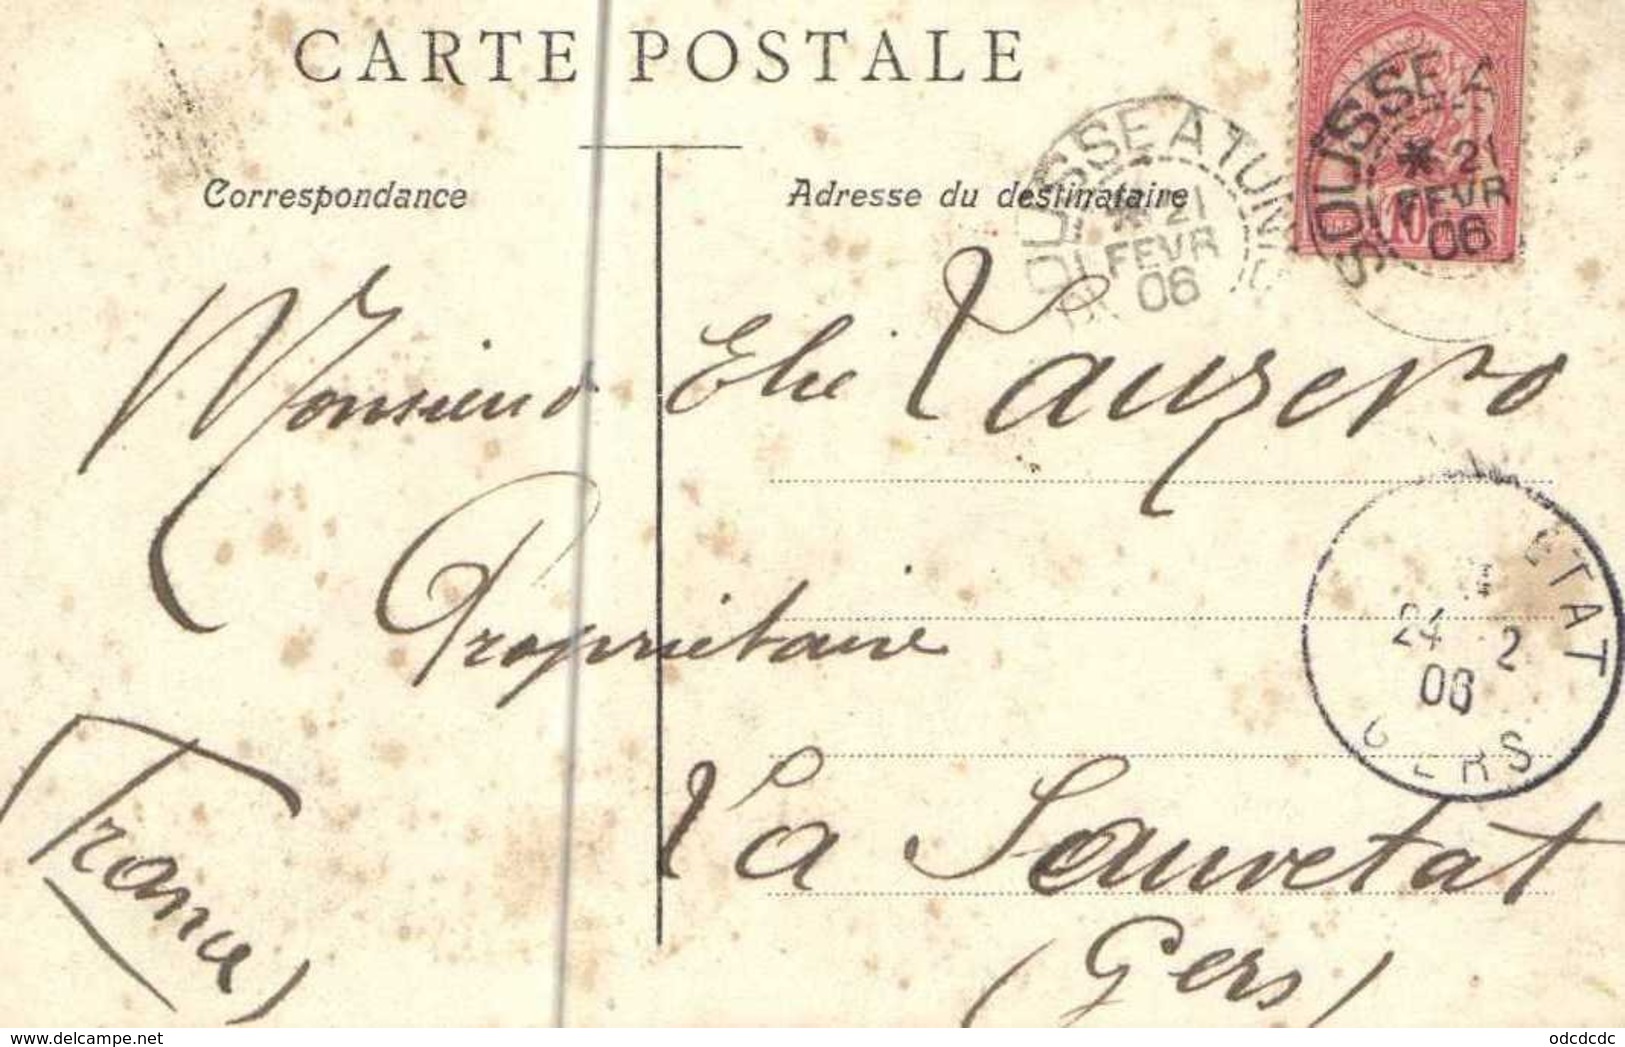 CARTE POSTALE
Correspondance
Adresse du destinataire
SOUSSE A TUNIS
* 21
FEVR
06
SOUSSE A
* 21
FEVR
06
10
Monsieur Elie Lauzero
Propriétaire
La Sauvetat
(Gers)
(France)
ETAT
24 2
06
GERS
www.delcampe.net
odcdcdc